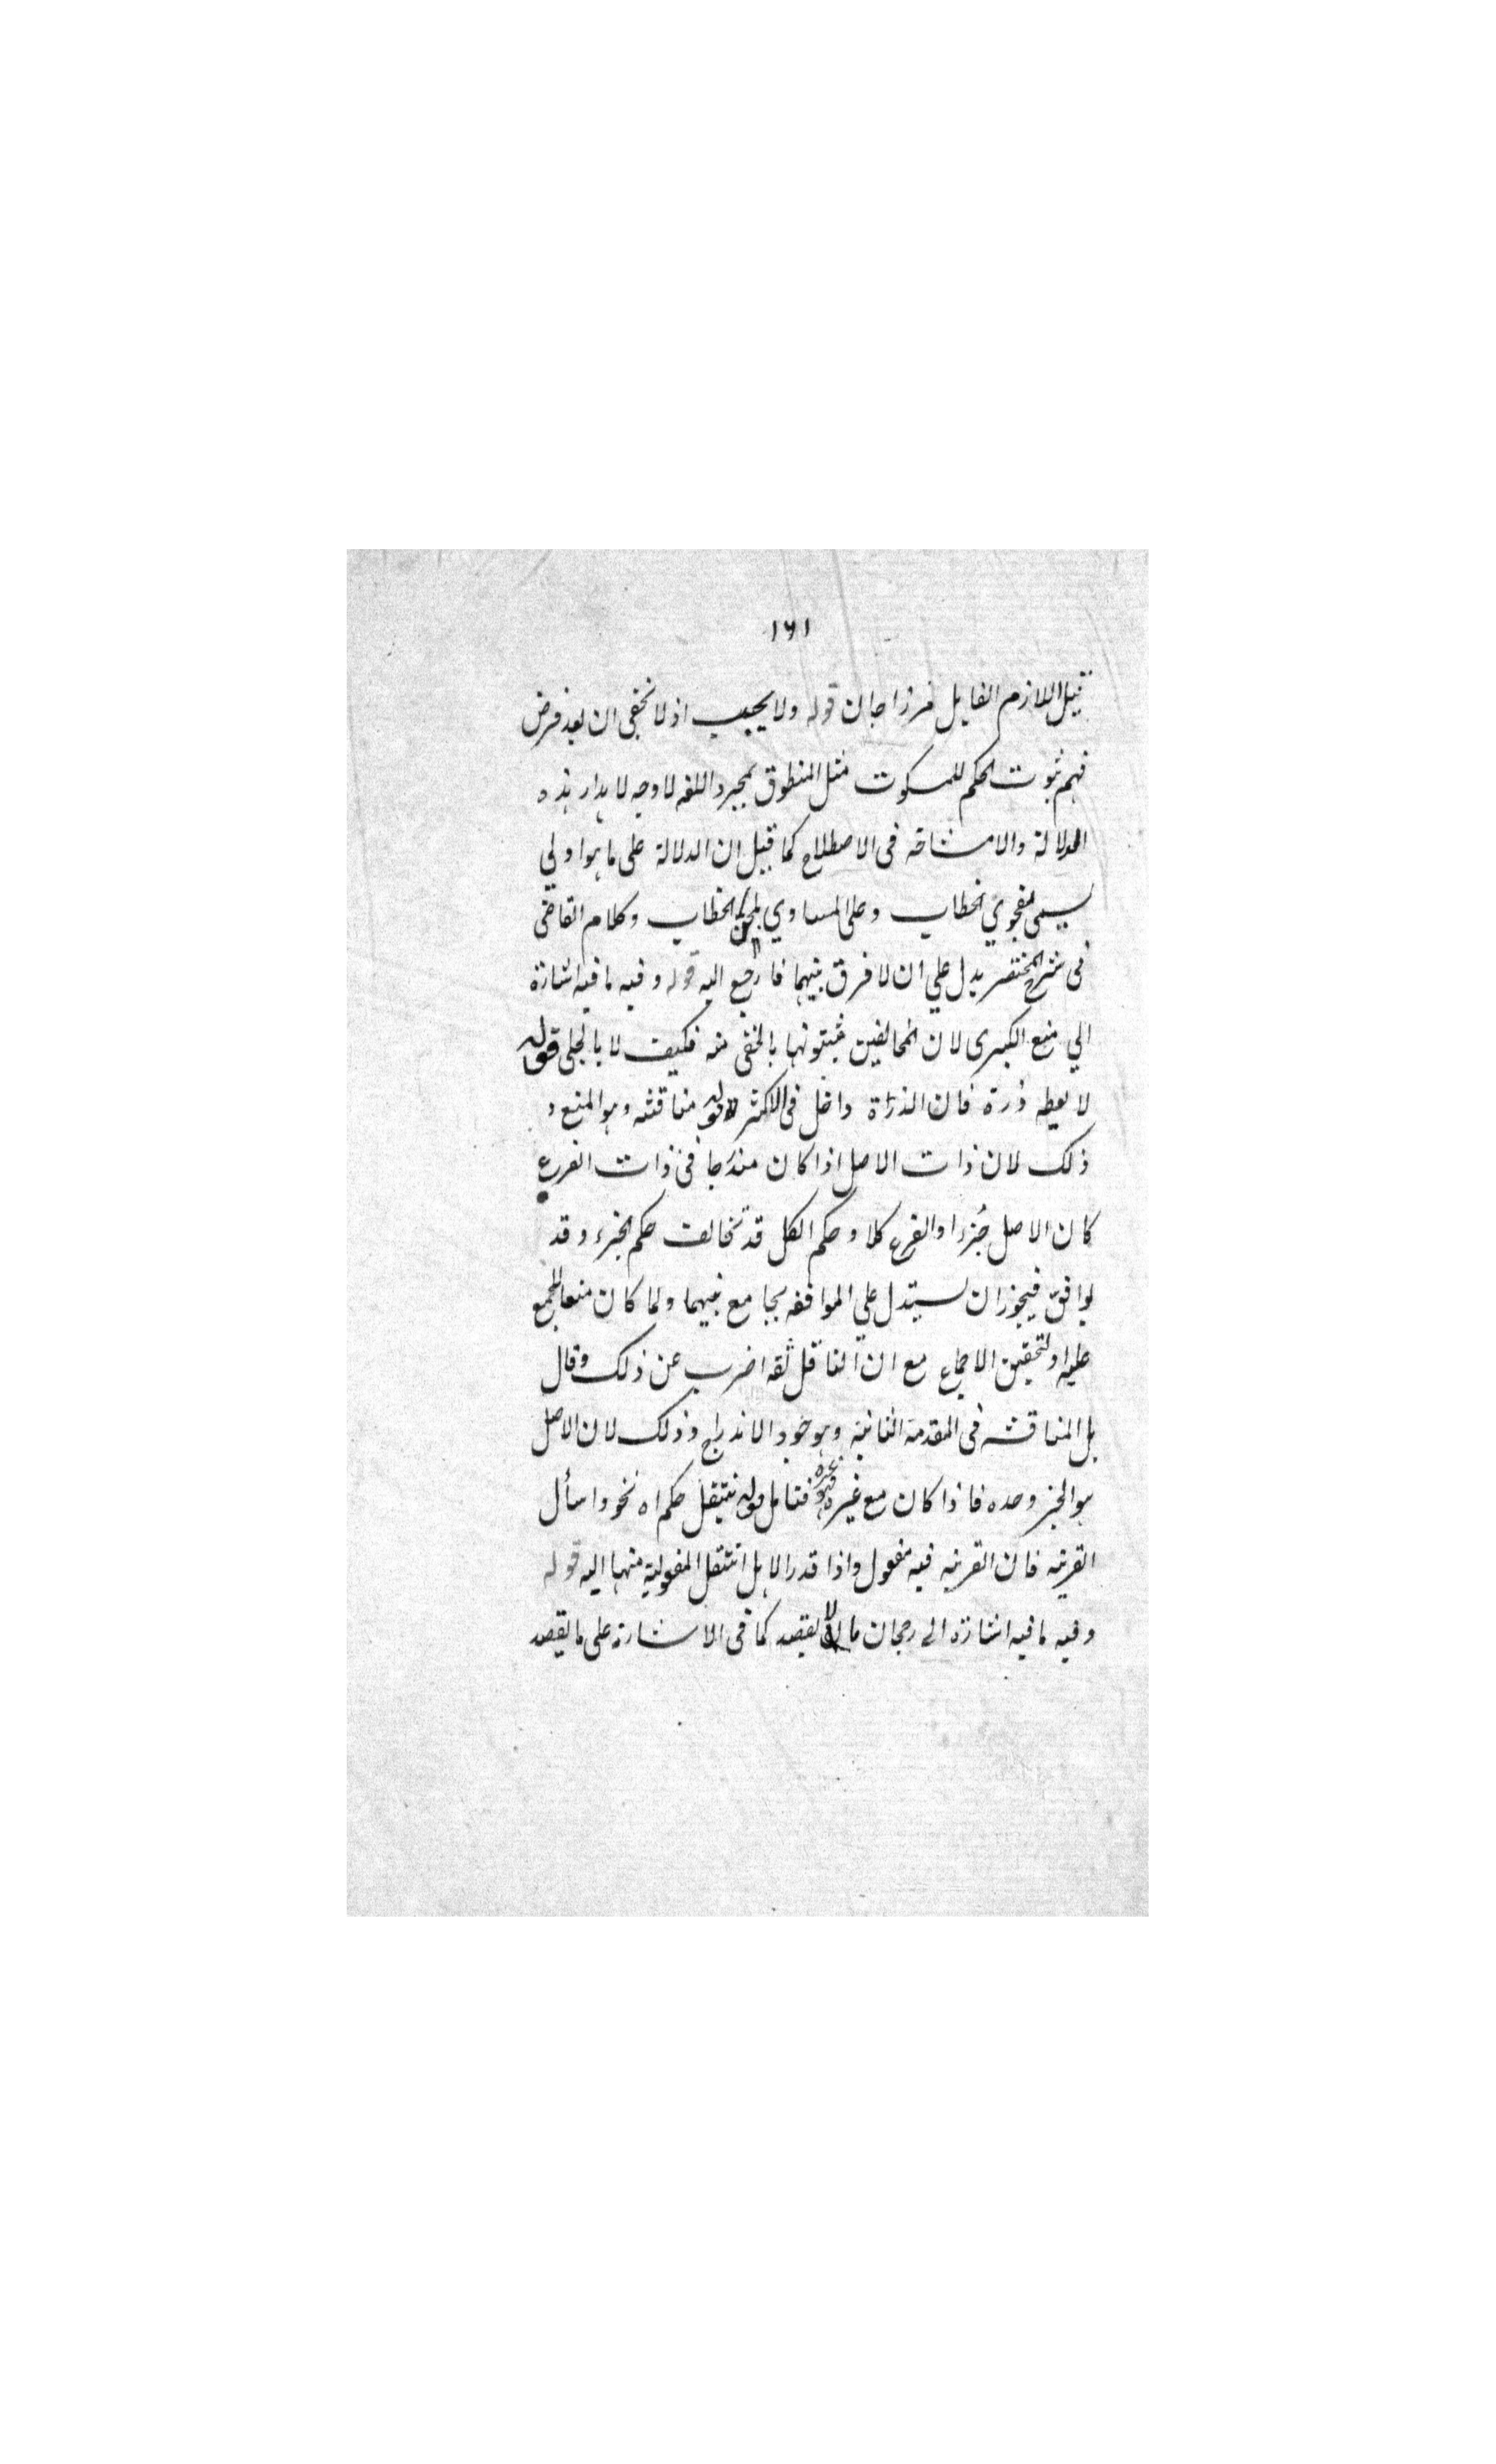 ١٦١
قبيل اللازم القايل مرزاجان قوله ولا يجيب اذ لا يخفى ان بعد فرض
فهم ثبوت الحكم للمسكوت مثل المنطوق بمجرد اللغه لا وجه لاهدار هذه
الدلالة والا مشاحه فى الاصطلاح كما قيل ان الدلالة على ما هو اولي
يسمى بفحوي الخطاب وعلى المساوي بلحن الخطاب وكلام القاضى
فى شرح المختصر يدل علي ان لا فرق بينهما فارجع اليه قوله وفيه ما فيه اشارة
الي منع الكبرى لان المخالفين يثبتونها بالخفى منه فكيف لا بالجلى قوله
لا يعطيه ذرة فان الذراة داخل فى الاكثر قوله مناقشه وهو المنع و
ذلك لان ذات الاصل اذا كان مندرجا فى ذات الفرع
كان الاصل جزءا والفرع كلا وحكم الكل قد يخالف حكم الجزء وقد
يوافق فيجوز ان يستدل علي الموافقه بجامع بينهما ولما كان منعا لمجمع
عليه او لتحقيق الاجماع مع ان الناقل ثقه اضرب عن ذلك وقال
بل المناقشه فى المقدمة الثانية وهو وجود الاندراج وذلك لان الاصل
هو الجز وحده فاذا كان مع غيره فهو غيره فتامل قوله ينتقل حكم اه نحو واسأل
القرية فان القرية فيه مفعول واذا قدر الاهل انتقل المفعولية منها اليه قوله
وفيه ما فيه اشارة الى رجحان ما لا يقصد كما فى الاشارة على ما يقصد